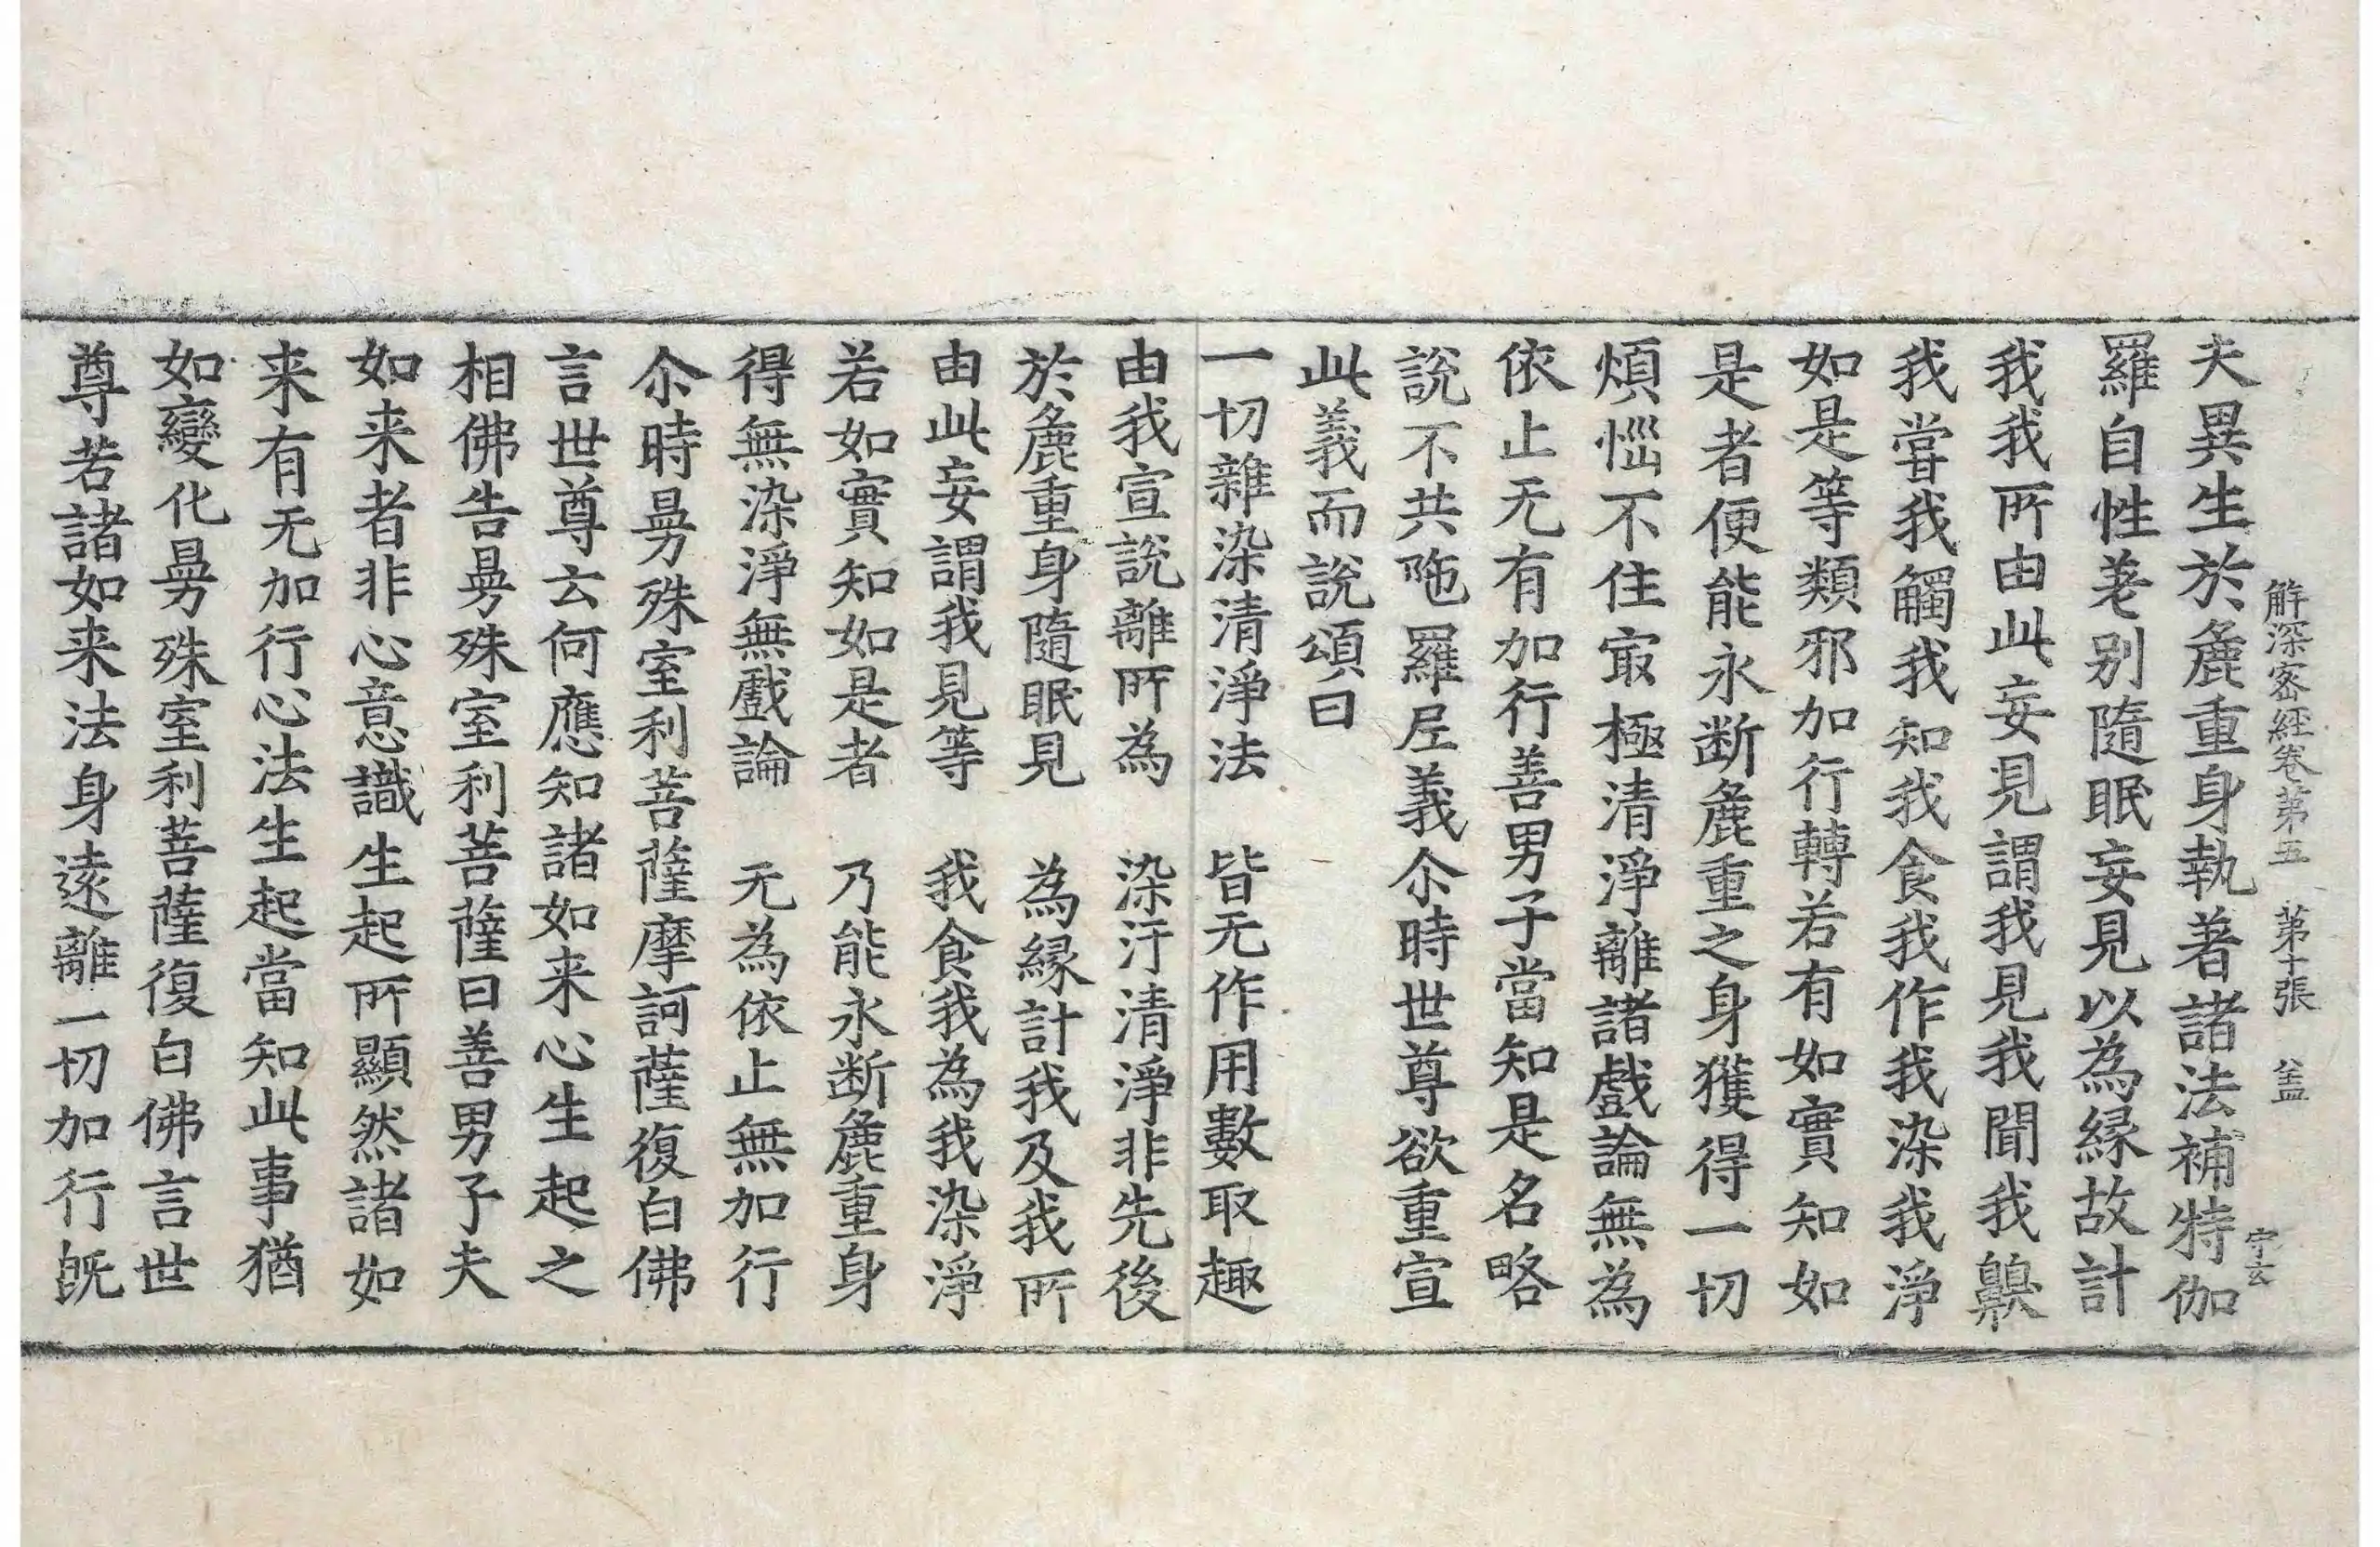 解深密經卷第五　第十張　盖
夫異生於麁重身執著諸法補特伽
守玄
羅自性差别隨眠妄見以為縁故計
我我所由此妄見謂我見我聞我齅
我甞我觸我知我食我作我染我淨
如是等類邪加行轉若有如實知如
是者便能永断麁重之身獲得一切
煩惱不住㝡極清淨離諸戲論無為
依止无有加行善男子當知是名略
說不共陁羅尼義尒時世尊欲重宣
此義而說頌曰
一切雜染清淨法　皆无作用數取趣
由我宣說離所為　染汙清淨非先後
於麁重身隨眠見　為縁計我及我所
由此妄謂我見等　我食我為我染淨
若如實知如是者　乃能永断麁重身
得無染淨無戲論　无為依止無加行
尒時曼殊室利菩薩摩訶薩復白佛
言世尊云何應知諸如来心生起之
相佛告曼殊室利菩薩曰善男子夫
如来者非心意識生起所顯然諸如
来有无加行心法生起當知此事猶
如變化曼殊室利菩薩復白佛言世
尊若諸如来法身遠離一切加行旣